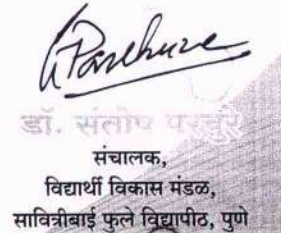 डॉ. संतोष परचुरे
संचालक,
विद्यार्थी विकास मंडळ,
सावित्रीबाई फुले विद्यापीठ, पुणे